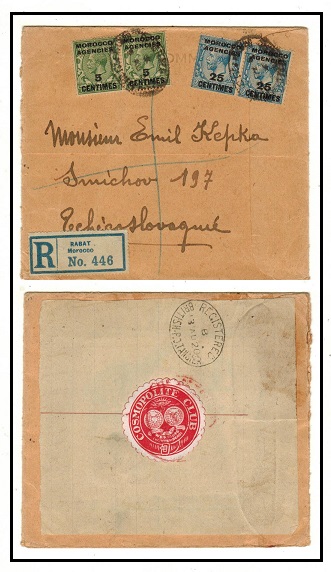 MOROCCO AGENCIES
5 CENTIMES
MOROCCO AGENCIES
5 CENTIMES
MOROCCO AGENCIES
25 CENTIMES
MOROCCO AGENCIES
25 CENTIMES
Monsieur Emil Kepka
Smichov 197
R
RABAT
Morocco
No. 446
REGISTERED
COSMOPOLITE CLUB